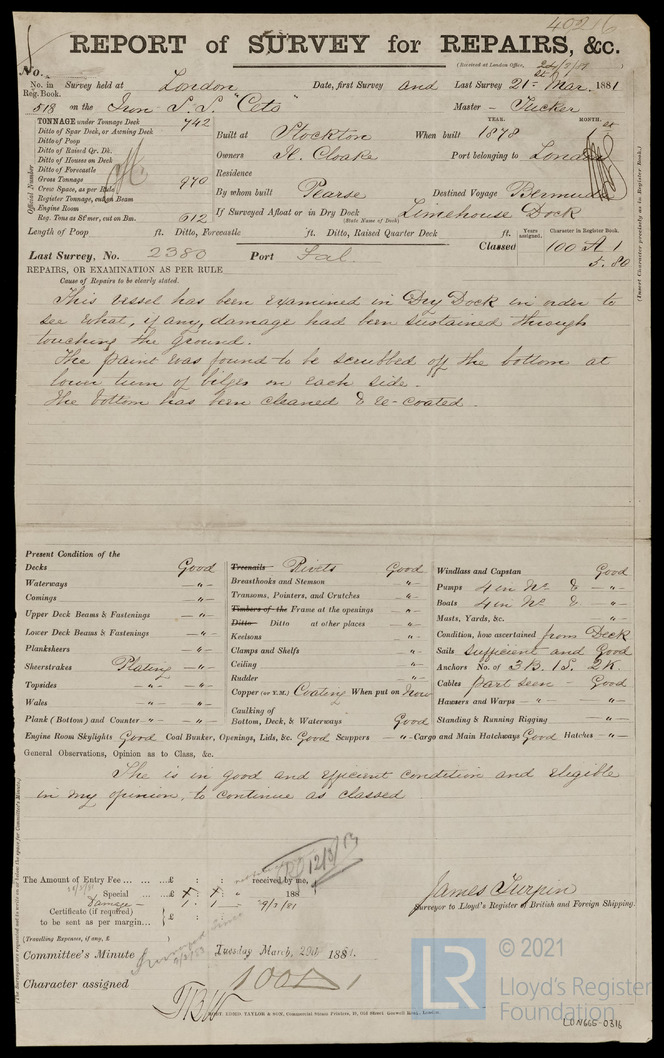 40216
REPORT of SURVEY for REPAIRS, &c.
(Received at London Office,
No.
No. in Reg. Book. Survey held at London Date, first Survey and Last Survey 21st Mar. 1881
518 on the Iron S.S. "Ceto" Master - Tucker
TONNAGE under Tonnage Deck 742
Ditto of Spar Deck, or Awning Deck
Ditto of Poop
Ditto of Raised Qr. Dk.
Ditto of Houses on Deck
Ditto of Forecastle
Gross Tonnage 970
Crew Space, as per Rule
Register Tonnage, cut on Beam
Engine Room
Reg. Tons as St'mer, cut on Bm. 612
Official Number
YEAR. MONTH.
Built at Stockton When built 1878
Owners H. Cloake Port belonging to London
Residence
By whom built Pearse Destined Voyage Bermuda
If Surveyed Afloat or in Dry Dock Limehouse Dock
(State Name of Dock)
Length of Poop ft. Ditto, Forecastle ft. Ditto, Raised Quarter Deck ft.
Years assigned. Character in Register Book.
Classed 100 A 1
5.80
Last Survey, No. 2380 Port Fal.
(Insert Character precisely as in Register Book.)
REPAIRS, OR EXAMINATION AS PER RULE
Cause of Repairs to be clearly stated.
This vessel has been examined in Dry Dock in order to
see what, if any, damage had been sustained through
touching the ground.
The paint was found to be scrubbed off the bottom at
lower turn of bilges on each side.
The bottom has been cleaned & re-coated.
Present Condition of the
Decks Good
Waterways -"-
Comings -"-
Upper Deck Beams & Fastenings -"-
Lower Deck Beams & Fastenings -"-
Planksheers -"-
Sheerstrakes Plating -"-
Topsides -"- -"-
Wales -"- -"-
Plank (Bottom) and Counter -"- -"-
Treenails Rivets Good
Breasthooks and Stemson -"-
Transoms, Pointers, and Crutches -"-
Timbers of the Frame at the openings -"-
Ditto Ditto at other places -"-
Keelsons -"-
Clamps and Shelfs -"-
Ceiling -"-
Rudder -"-
Copper (or Y.M.) Coating When put on Now
Caulking of
Bottom, Deck, & Waterways Good
Windlass and Capstan Good
Pumps 4 in No. & -"-
Boats 4 in No. & -"-
Masts, Yards, &c. -"-
Condition, how ascertained from Deck
Sails sufficient and Good
Anchors No. of 3B. 1S. 2K.
Cables part seen - Good
Hawsers and Warps -"- -"-
Standing & Running Rigging -"-
Engine Room Skylights Good Coal Bunker, Openings, Lids, &c. Good Scuppers -"- Cargo and Main Hatchways Good Hatches -"-
General Observations, Opinion as to Class, &c.
She is in good and efficient condition and eligible
in my opinion, to continue as classed
The Amount of Entry Fee ... £ : : received by me,
Special ... £ : : 188
Damage - 1 : 1 -
Certificate (if required) £
to be sent as per margin...
(Travelling Expenses, if any, £ )
12/3/13
James Turpin
Surveyor to Lloyd's Register of British and Foreign Shipping.
Committee's Minute Tuesday March, 29th 1881.
Character assigned 100A1
LONDON: EDWD. TAYLOR & SON, Commercial Steam Printers,
© 2021
LR Lloyd's Register
Foundation
LON665-0316